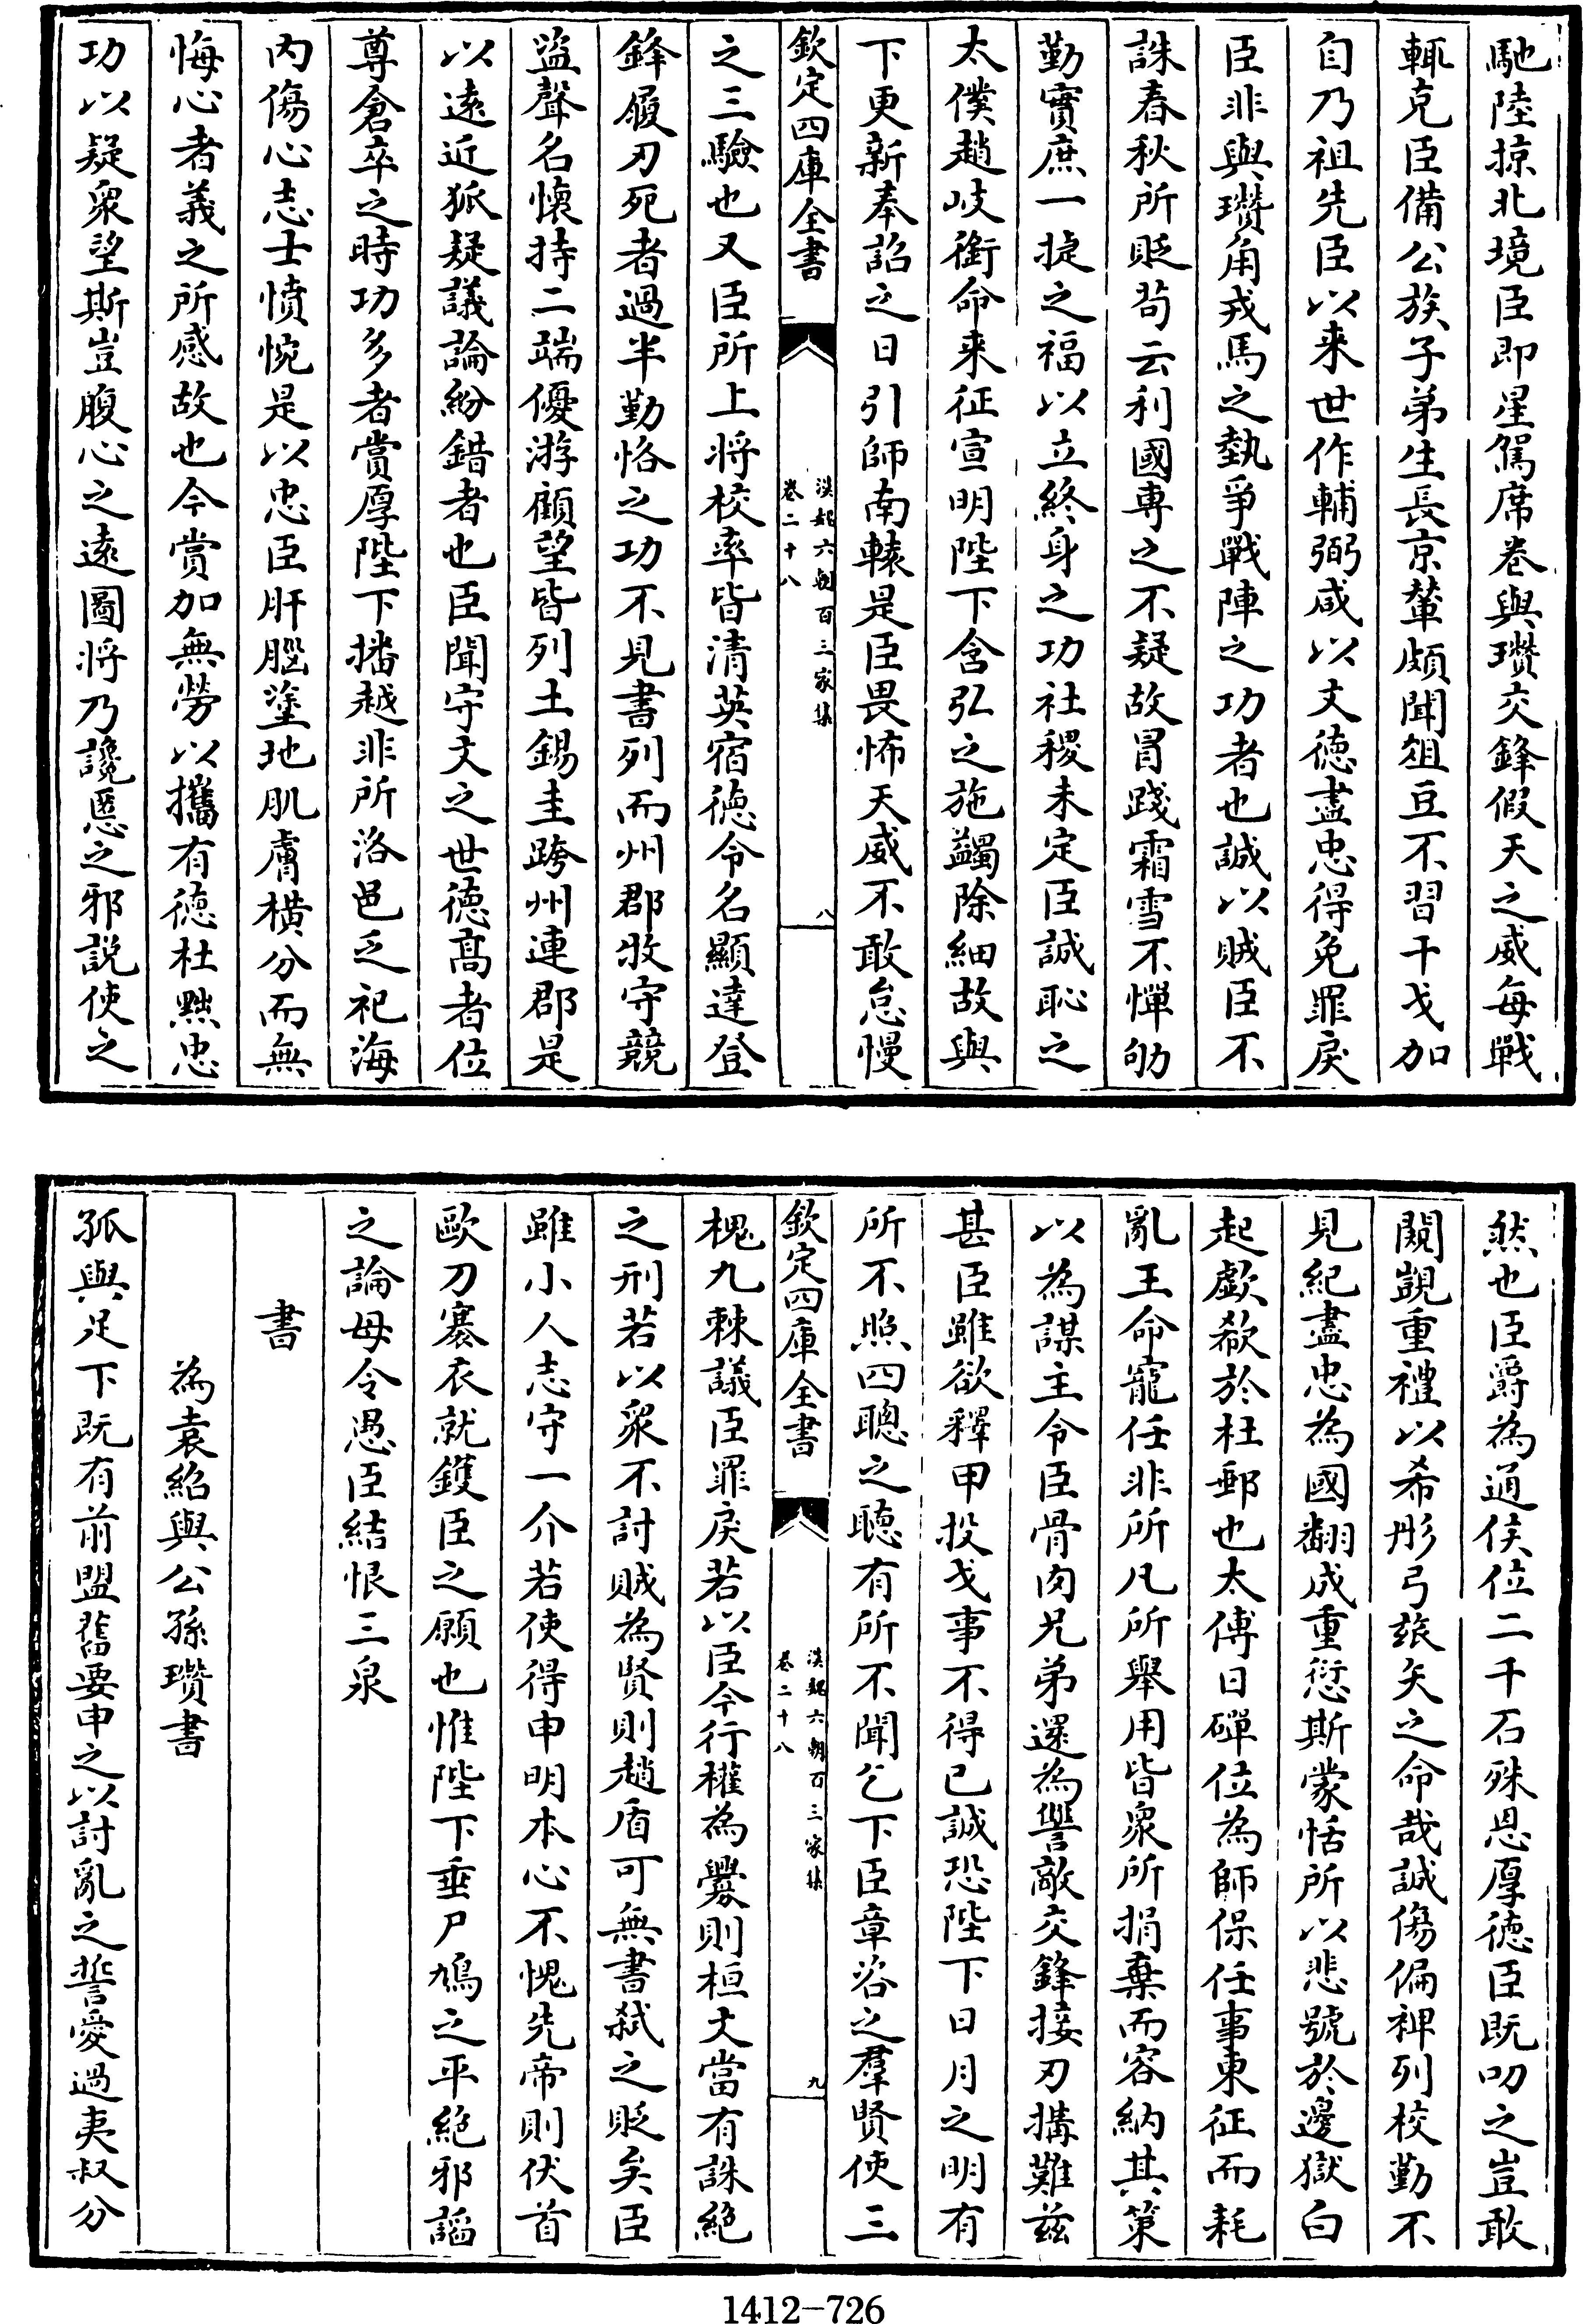 馳陸掠北境臣即星駕席卷與瓚交鋒假天之威每戰
輒克臣備公族子弟生長京輦頗聞俎豆不習干戈加
自乃祖先臣以来世作輔弼咸以文徳盡忠得免罪戾
臣非與瓚角戎馬之埶爭戰陣之功者也誠以賊臣不
誅春秋所貶苟云利國專之不疑故冒踐霜雪不憚劬
勤實庶一捷之福以立終身之功社稷未定臣誠恥之
太僕趙岐銜命来征宣明陛下含弘之施蠲除細故與
下更新奉詔之日引師南轅是臣畏怖天威不敢怠慢
欽定四庫全書
漢魏六朝百三家集
卷二十八
八
之三驗也又臣所上将校率皆清英宿徳令名顯達登
鋒履刃死者過半勤恪之功不見書列而州郡牧守競
盜聲名懷持二端優游顧望皆列土錫圭跨州連郡是
以逺近狐疑議論紛錯者也臣聞守文之世徳髙者位
尊倉卒之時功多者賞厚陛下播越非所洛邑乏祀海
内傷心志士憤惋是以忠臣肝腦塗地肌膚横分而無
悔心者義之所感故也今賞加無勞以攜有徳杜黜忠
功以疑衆望斯豈腹心之逺圖将乃讒慝之邪説使之
然也臣爵為通侯位二千石殊恩厚徳臣既叨之豈敢
闚覬重禮以希彤弓玈矢之命哉誠傷偏裨列校勤不
見紀盡忠為國翻成重愆斯蒙恬所以悲號於邊獄白
起歔欷於杜郵也太傅日磾位為師保任事東征而耗
亂王命寵任非所凡所舉用皆衆所捐棄而容納其䇿
以為謀主令臣骨肉兄弟還為讐敵交鋒接刃搆難兹
甚臣雖欲釋甲投戈事不得已誠恐陛下日月之明有
所不照四聰之聽有所不聞乞下臣章咨之羣賢使三
欽定四庫全書
漢魏六朝百三家集
卷二十八
九
槐九棘議臣罪戾若以臣今行權為釁則桓文當有誅絶
之刑若以衆不討賊為賢則趙盾可無書弑之貶矣臣
雖小人志守一介若使得申明本心不愧先帝則伏首
歐刀褰衣就鑊臣之願也惟陛下垂尸鳩之平絶邪謟
之論毋令愚臣結恨三泉
書
為袁紹與公孫瓚書
孤與足下既有前盟舊要申之以討亂之誓愛過夷叔分
1412-726